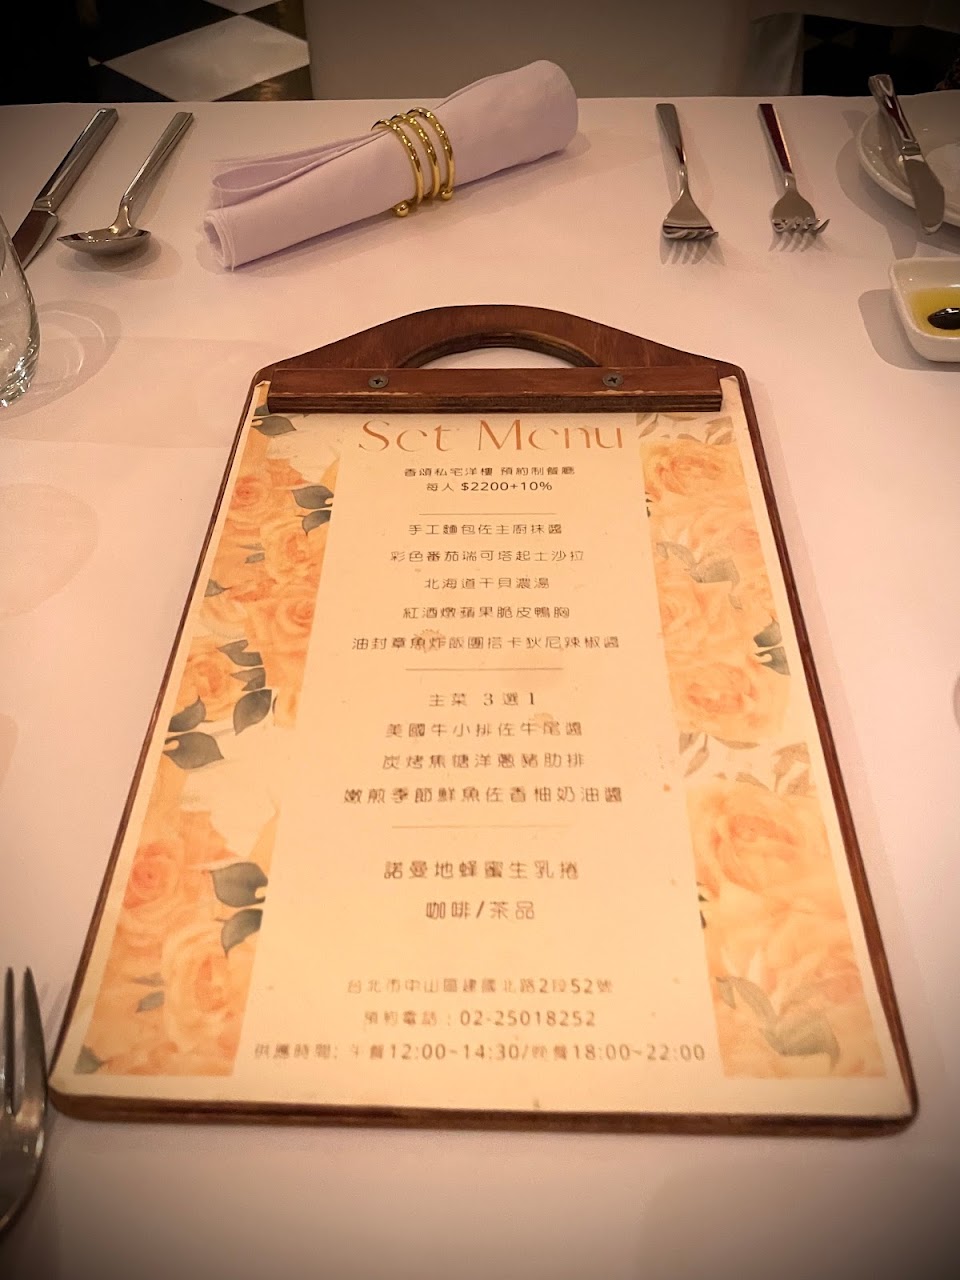 Set Menu
香頌私宅洋樓 預約制餐廳
每人 $2200+10%
手工麵包佐主廚抹醬
彩色番茄瑞可塔起士沙拉
北海道干貝濃湯
紅酒燉蘋果脆皮鴨胸
油封章魚炸飯團搭卡狄尼辣椒醬
主菜 3 選 1
美國牛小排佐牛尾醬
炭烤焦糖洋蔥豬肋排
嫩煎季節鮮魚佐香柚奶油醬
諾曼地蜂蜜生乳捲
咖啡/茶品
台北市中山區建國北路2段52號
預約電話：02-25018252
供應時間: 午餐12:00~14:30/晚餐18:00~22:00